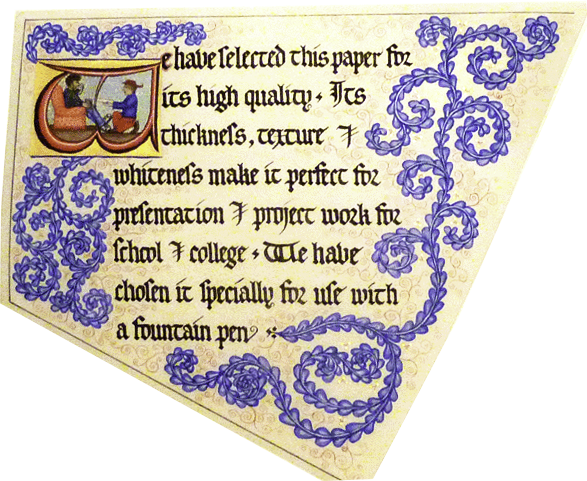 We have ſelected this paper for
its high quality · Its
thickneſs, texture ⁊
whiteneſs make it perfect for
preſentation ⁊ project work for
ſchool ⁊ college · We have
choſen it ſpecially for uſe with
a fountain pen